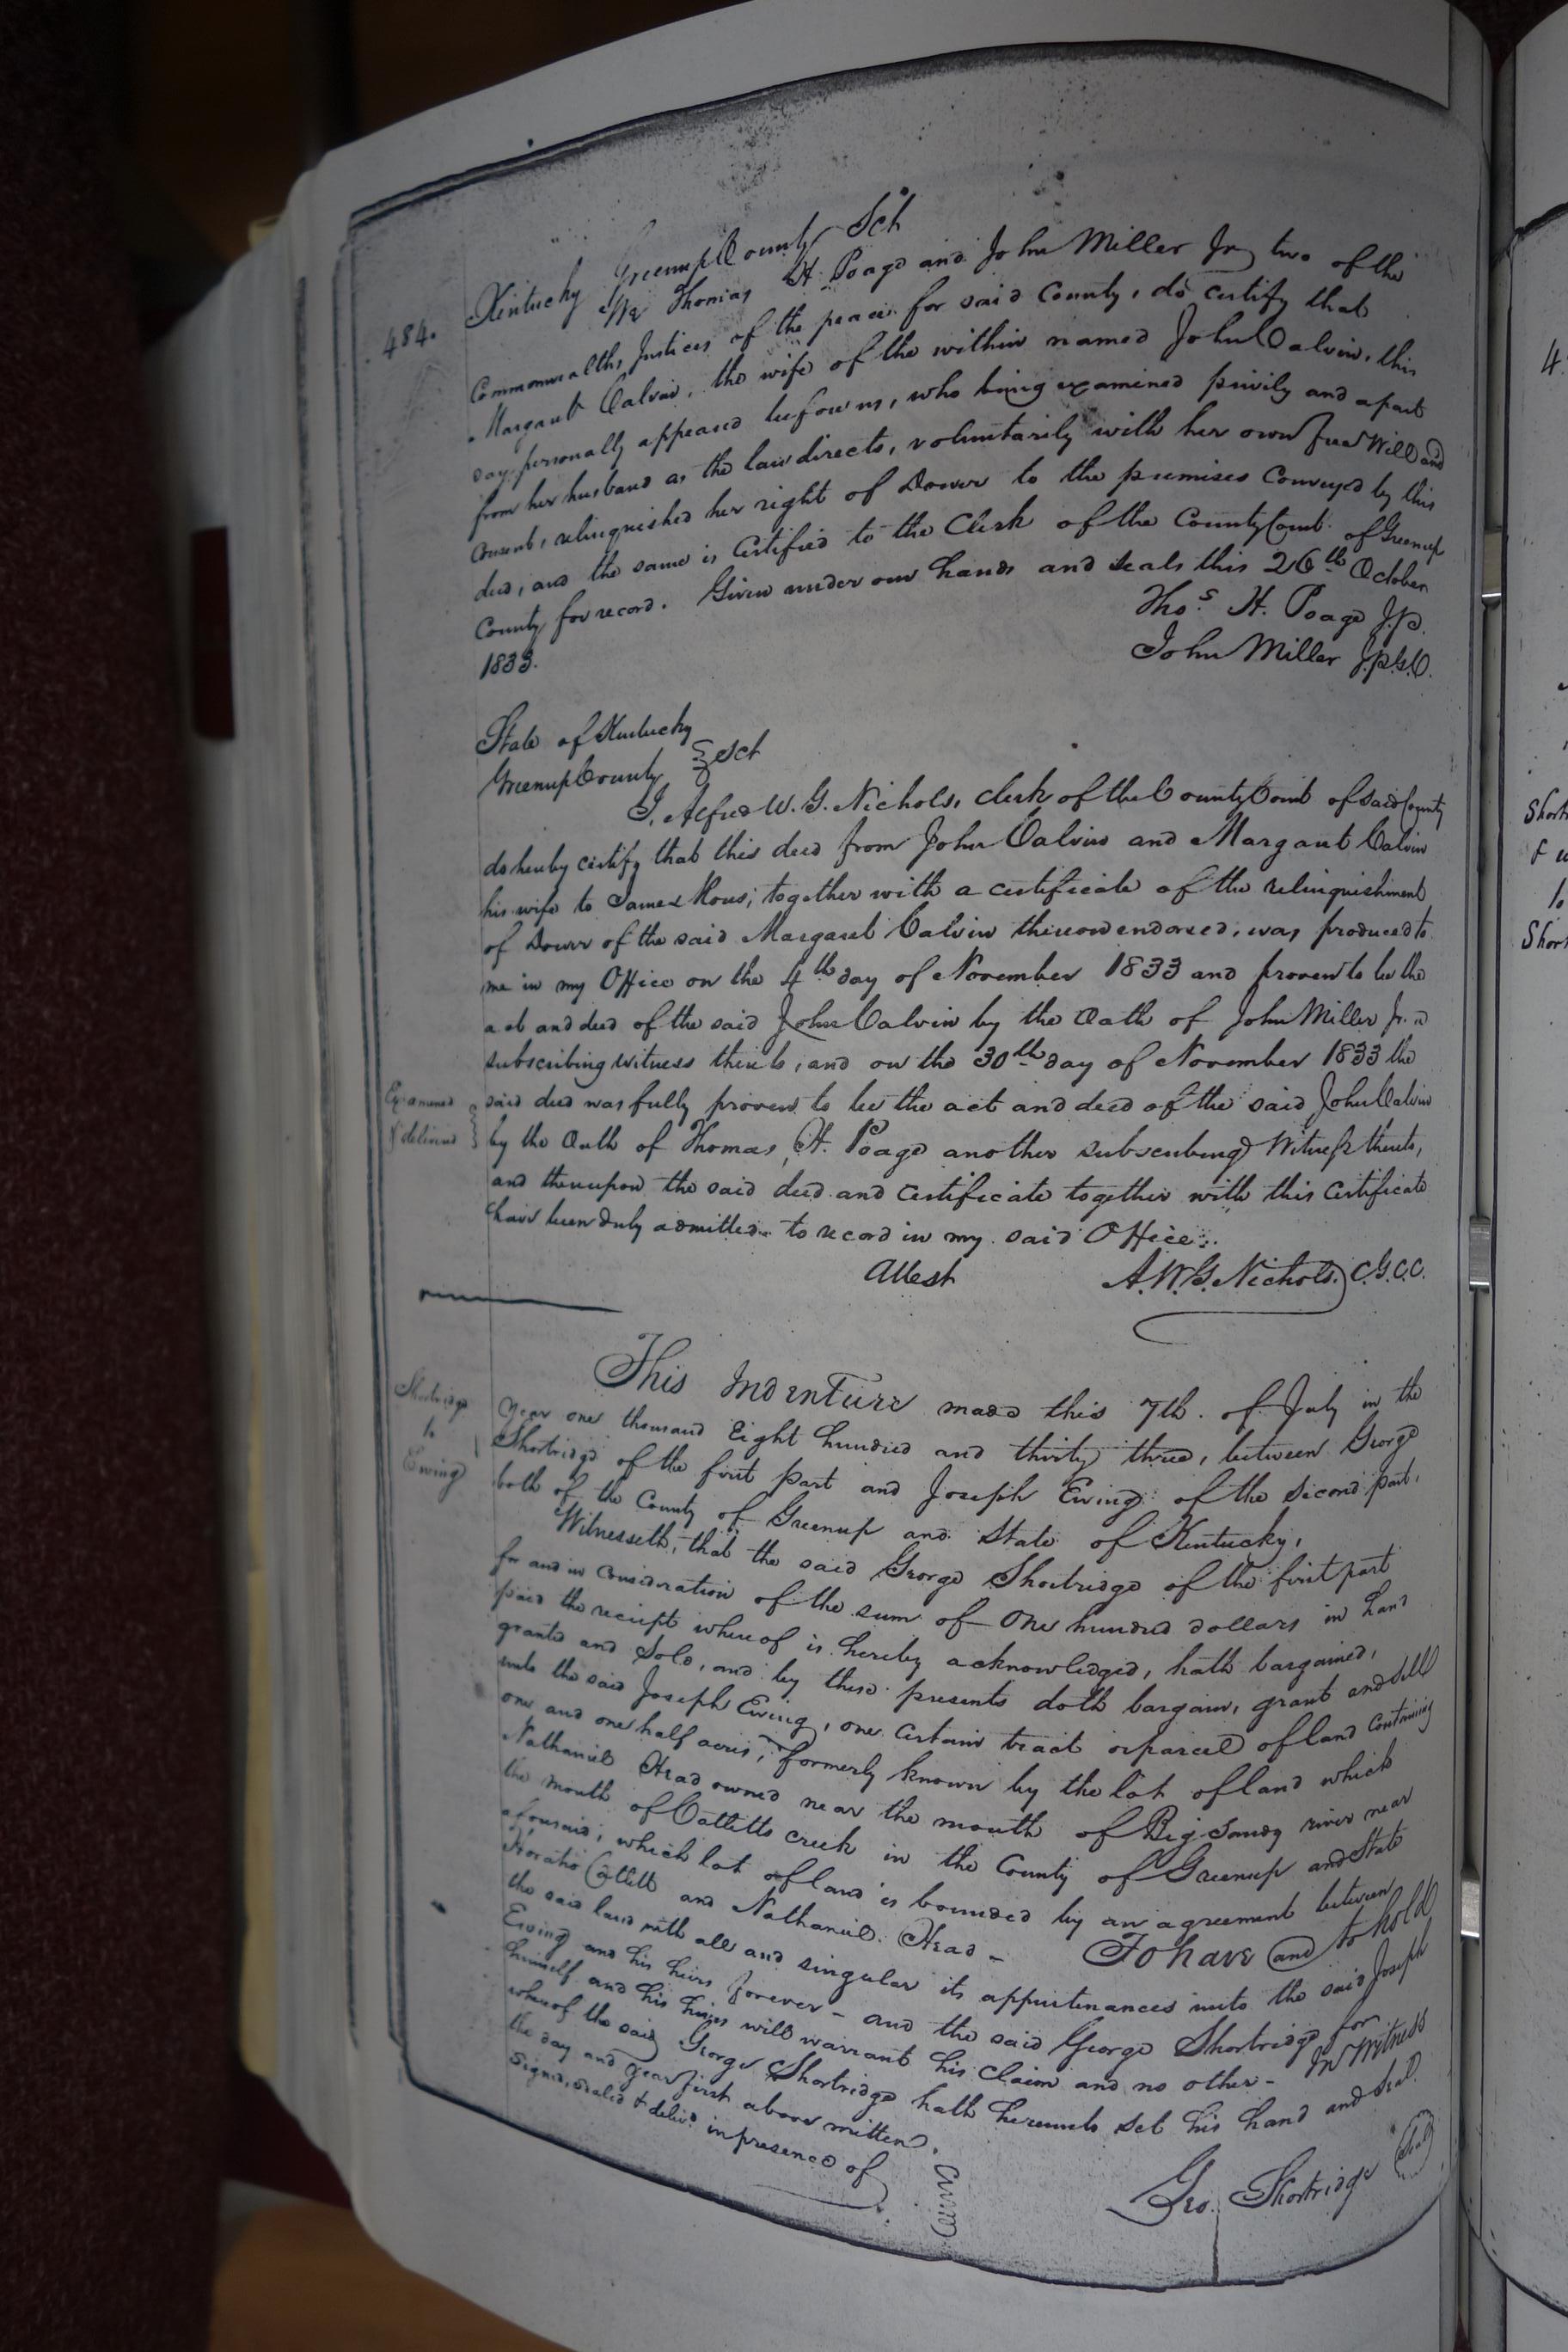 484.
Kentucky Greenup County Sct
We Thomas H. Poage and John Miller Jr two of the
Commonwealths Justices of the peace for said County, do certify that
Margaret Calvin, the wife of the within named John Calvin, this
day personally appeared before us, who being examined privily and apart
from her husband as the law directs, voluntarily with her own free Will and
consent, relinquished her right of Dower to the premises Conveyed by this
deed, and the same is Certified to the Clerk of the County Court of Greenup
County for record. Given under our hands and seals this 26th October
1833.
Thos. H. Poage J.P.
John Miller J.P.G.C.
State of Kentucky
Greenup County } Sct
I, Alfred W. G. Nichols, Clerk of the County Court of said County
do hereby certify that this deed from John Calvin and Margaret Calvin
his wife to James; together with a certificate of the relinquishment
of Dower of the said Margaret Calvin thereon endorsed, was produced to
me in my Office on the 4th day of November 1833 and proven to be the
act and deed of the said John Calvin by the Oath of John Miller Jr. a
subscribing witness thereto, and on the 30th day of November 1833 the
Examined
& delivered
said deed was fully proven to be the act and deed of the said John Calvin
by the Oath of Thomas H. Poage another subscribing Witness thereto,
and thereupon the said deed and certificate together with this Certificate
have been duly admitted to record in my said Office.
Attest A. W. G. Nichols C.G.C.C.
Shortridge
to
Ewing
This Indenture made this 7th. of July in the
Year one thousand Eight hundred and thirty three, between George
Shortridge of the first part and Joseph Ewing of the second part,
both of the County of Greenup and State of Kentucky,
Witnesseth, that the said George Shortridge of the first part
for and in Consideration of the sum of One hundred dollars in hand
paid the receipt whereof is hereby acknowledged, hath bargained,
granted and Sold, and by these presents doth bargain, grant and sell
unto the said Joseph Ewing, one Certain tract or parcel of land Containing
one and one half acres, formerly known by the lot of land which
Nathaniel Head owned near the mouth of Big Sandy river near
the mouth of Catletts creek in the County of Greenup and State
aforesaid; which lot of land is bounded by an agreement between
Horatio Catlett and Nathaniel Head - To have and to hold
the said land with all and singular its appurtenances unto the said Joseph
Ewing and his heirs forever - and the said George Shortridge for
himself and his heirs will warrant his Claim and no other - In Witness
whereof the said George Shortridge hath hereunto set his hand and seal
the day and year first above written.
Signed, Sealed & delivd in presence of
Geo. Shortridge (Seal)
4
Short
to
Short